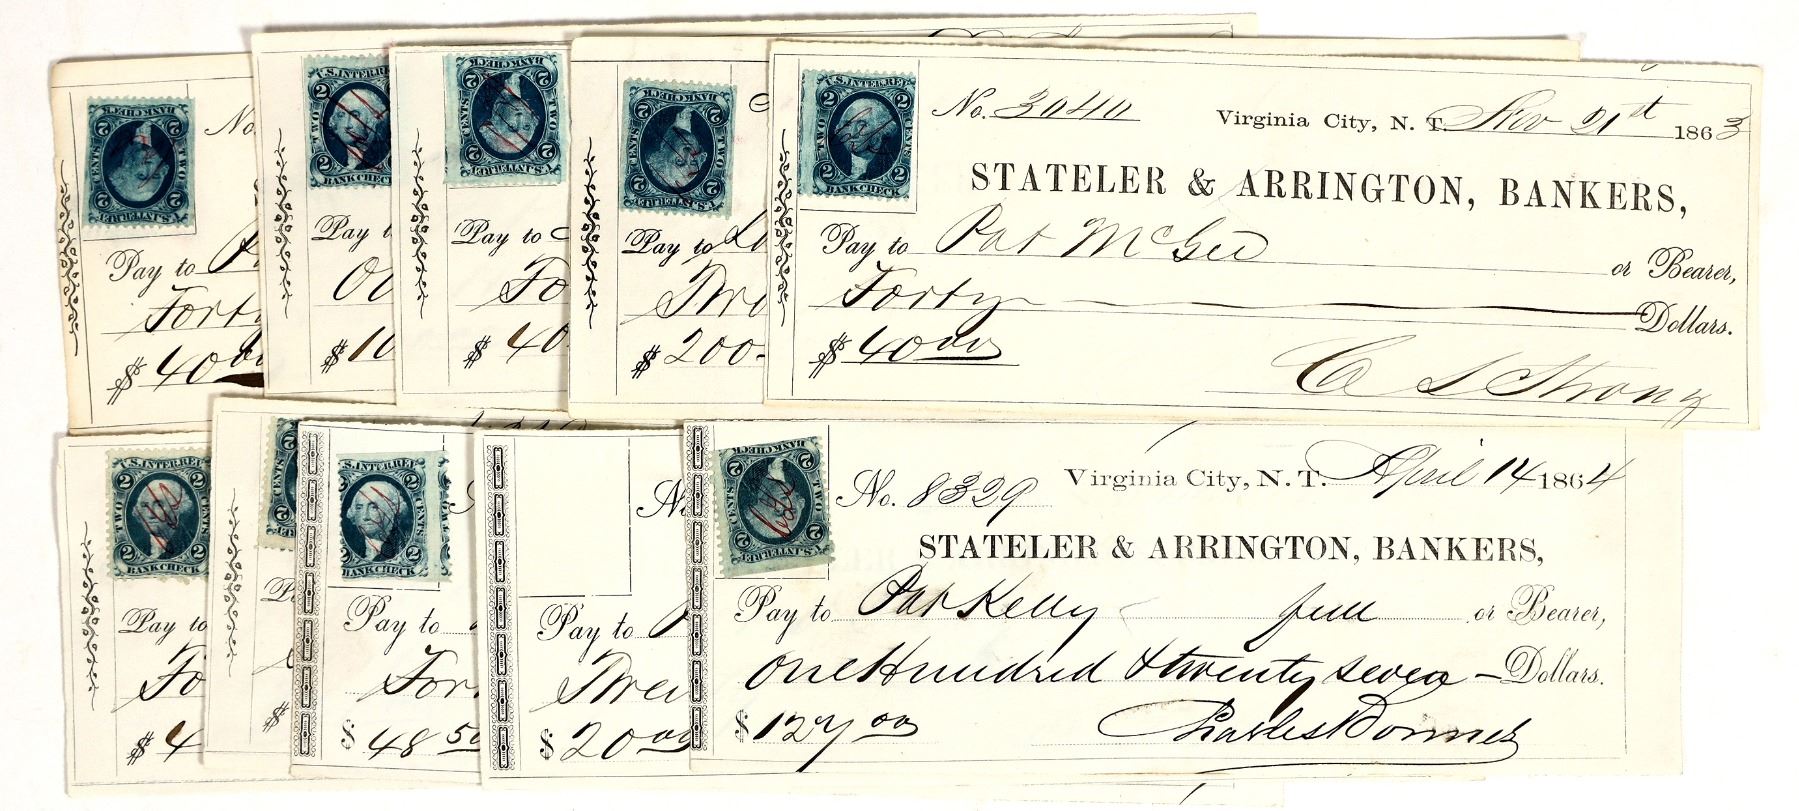 U.S. INTER. REV.
2 2
TWO CENTS
BANK CHECK
No.
Pay to
Forty
$ 40 00
U.S. INTER. REV.
2
TWO
2
BANK CHECK
Pay t
$ 10
U.S. INTER. REV.
2 2
TWO CENTS
2 2
BANK CHECK
Pay to
Fo
$ 40
U.S. INTER. REV.
2 2
TWO CENTS
2 2
BANK CHECK
Pay to
$ 200
U.S. INTER. REV.
2 2
TWO CENTS
2 2
BANK CHECK
No. 3040 Virginia City, N. T. Nov 21st 1863
STATELER & ARRINGTON, BANKERS,
Pay to Pat McGee or Bearer,
Forty Dollars.
$ 40 00
C S Strong
U.S. INTER. REV.
2 2
TWO CENTS
2 2
BANK CHECK
Pay to
Fo
$ 4
2
CENTS
2
$
U.S. INTER. REV.
2
CENTS
2 2
BANK CHECK
Pay to
For
$ 48 50
No
Pay to
$ 20 00
U.S. INTER. REV.
2 2
TWO CENTS
2 2
BANK CHECK
No. 8329 Virginia City, N. T. April 14 1864
STATELER & ARRINGTON, BANKERS,
Pay to Pat Kelly full or Bearer,
One Hundred & twenty seven Dollars.
$ 127 00
Charles Bonner